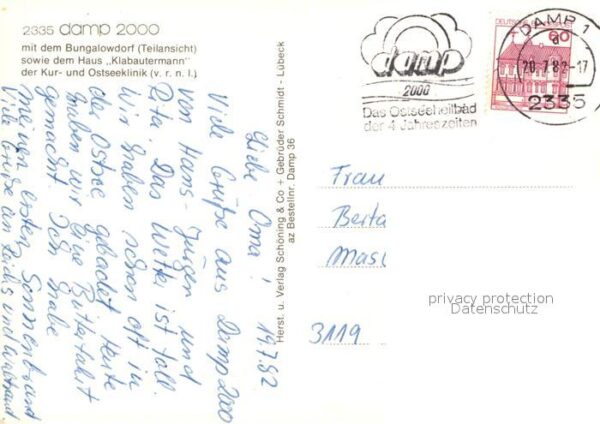 2335 damp 2000
mit dem Bungalowdorf (Teilansicht)
sowie dem Haus „Klabautermann"
der Kur- und Ostseeklinik (v. r. n. l.)
Liebe Oma! 19.7.82
Viele Grüße aus Damp 2000
von Hans-Jürgen und
Rita. Das Wetter ist toll.
Wir haben schon oft in
der Ostsee gebadet. Heute
haben wir eine Butterfahrt
gemacht. Ich habe
meinen ersten Sonnenbrand
Viele Grüße an und Waltraut
Herst. u. Verlag Schöning & Co + Gebrüder Schmidt - Lübeck
az Bestellnr. Damp 36
damp
2000
Das Ostseeheilbad
der 4 Jahreszeiten
DEUTSCHE BUNDESPOST
60
DAMP 1
20.7.82-17
2335
Frau
Berta
Masi
3119
privacy protection
Datenschutz